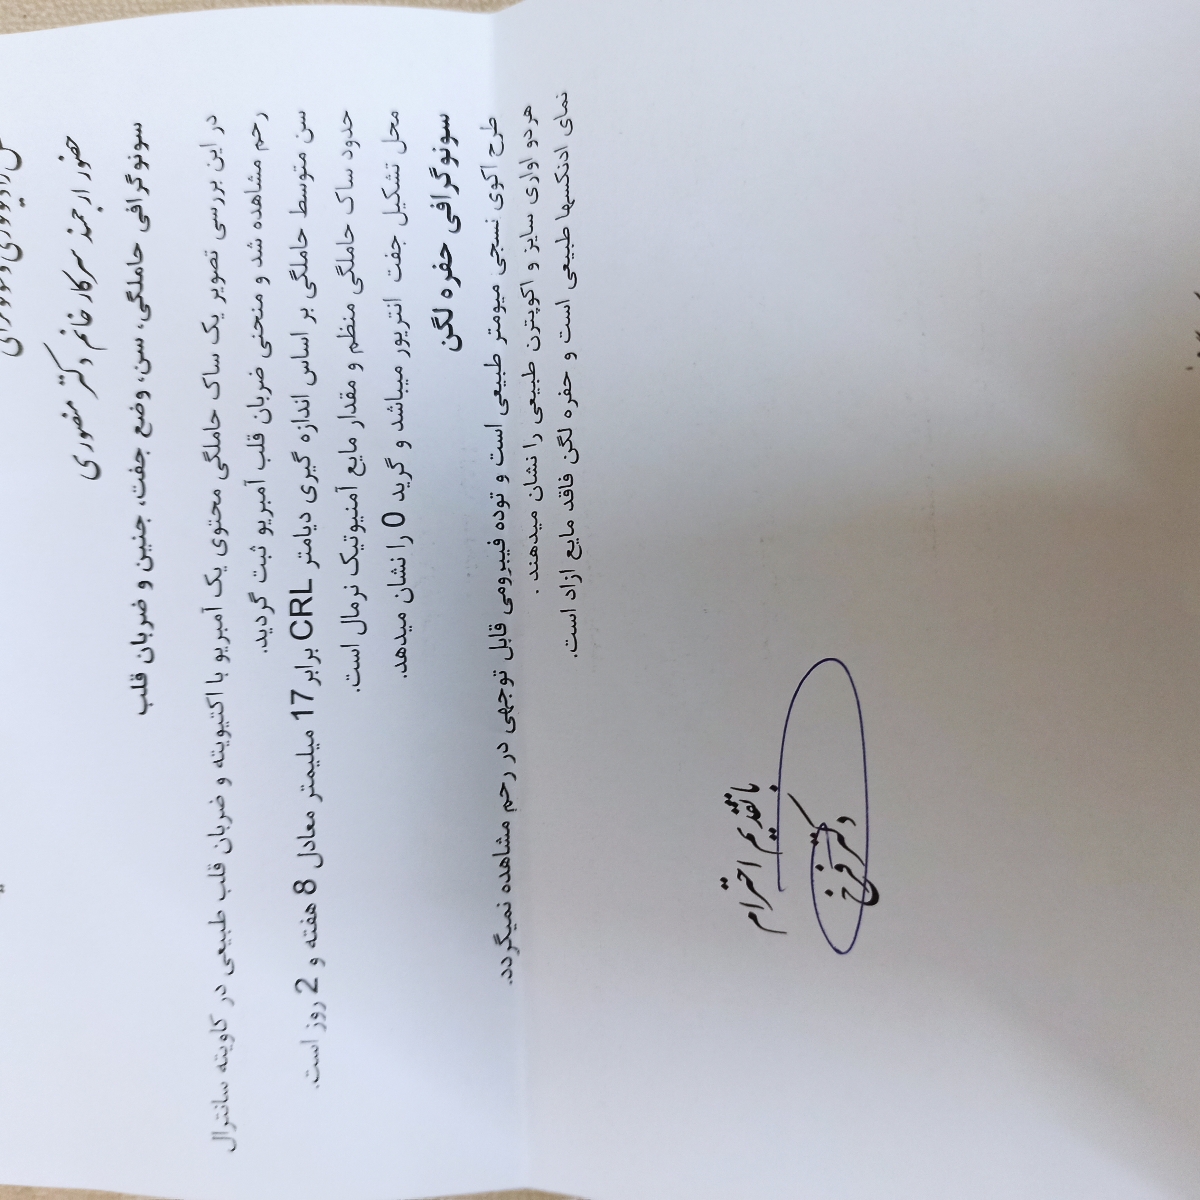 حضور ارجمند سرکار خانم دکتر منصوری
سونوگرافی حاملگی، سن، وضع جفت، جنین و ضربان قلب
در این بررسی تصویر یک ساک حاملگی محتوی یک آمبریو با اکتیویته و ضربان قلب طبیعی در کاویته سانترال
رحم مشاهده شد و منحنی ضربان قلب آمبریو ثبت گردید.
سن متوسط حاملگی بر اساس اندازه گیری دیامتر CRL برابر 17 میلیمتر معادل 8 هفته و 2 روز است.
حدود ساک حاملگی منظم و مقدار مایع آمنیوتیک نرمال است.
محل تشکیل جفت انتریور میباشد و گرید 0 را نشان میدهد.
سونوگرافی حفره لگن
طرح اکوی نسجی میومتر طبیعی است و توده فیبرومی قابل توجهی در رحم مشاهده نمیگردد.
هردو اواری سایز و اکوپترن طبیعی را نشان میدهند .
نمای ادنکسها طبیعی است و حفره لگن فاقد مایع ازاد است.
با تقدیم احترام
دکتر فرخ